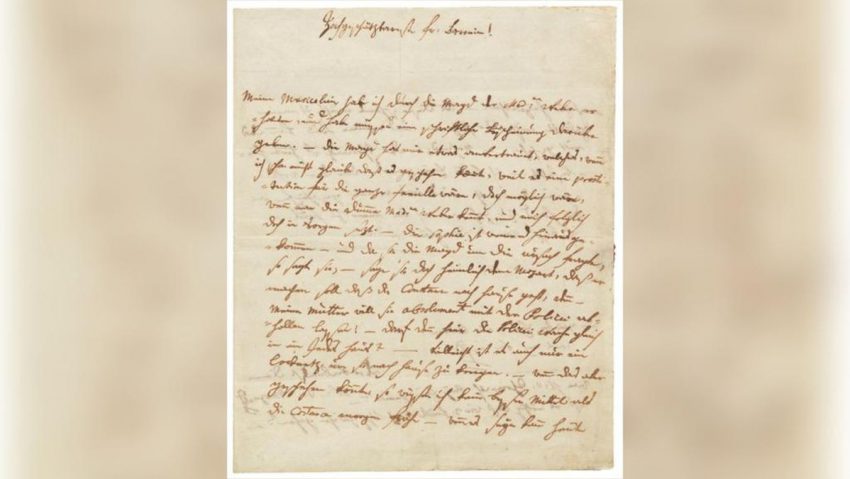 Hochgeschätzteste fr: Baronin!
Meine Musicalien hab ich durch die Magd der Mad:me Weber er-
halten, und habe müssen eine schriftliche bescheinung darüber
geben. — die Magd hat mir etwas anvertrauet, welches, wenn
ich schon nicht glaube daß es geschehen könnte, weil es eine prosti-
tution für die ganze familie wäre, doch möglich wäre,
wenn man die dumme Mad:me Weber kennt, und mich folglich
doch in Sorgen setzt. — die Sophie ist weinend hinausge-
kommen — und da sie die Magd um die ursach fragte,
so sagte sie; — sage sie doch heimlich dem Mozart, daß er
machen soll daß die Constanz nach hause geht, den —
Meine Mutter will sie absolument mit der Polizei ab-
hollen lassen! — darf den hier die Polizei wache gleich
in ein Jedes haus? — villeicht ist es auch nur ein
locknetz um sie nach hause zu kriegen. — wenn das aber
geschehen könnte, so wüste ich kein besser Mittel als
die Constanz morgen frühe — wenns seyn kann heute